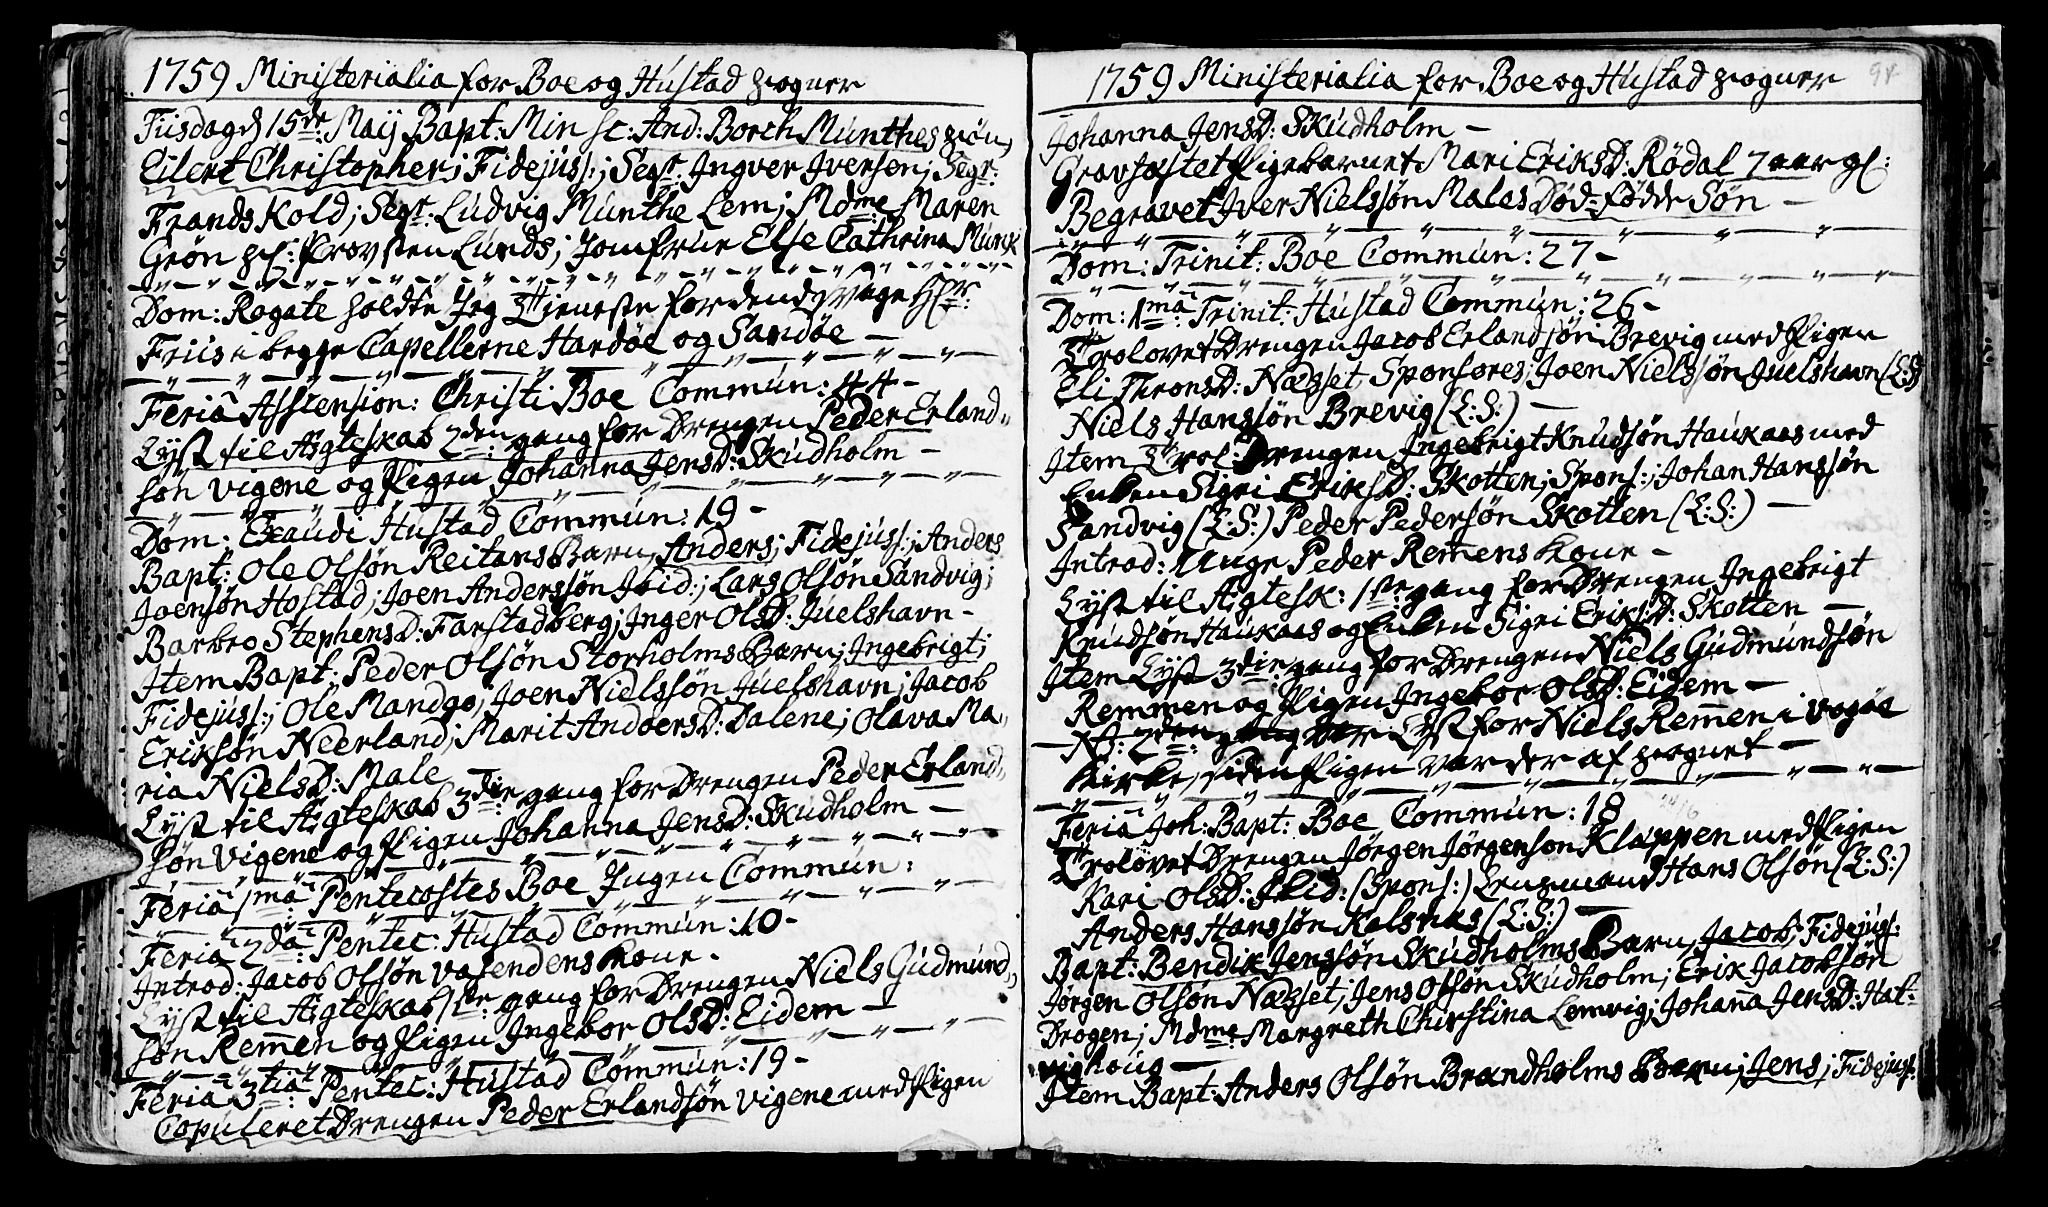 1759 Ministerialia for Boe og Hustad Sogner
Tiisdag d 15de: Maij Bapt: Min Sc: And: Borch Munthes Søn,
Eilert Christopher; Fidejuss:; Segr: Ingver Iversen; Segr:
Frands Kold; Segr: Ludvig Munthe Lem; Mdme Maren
Grøn Sl: Provsten Lunds; Jomfrue Else Cathrina Munk
Dom: Rogate holdte Jeg Tieneste for dend Syge Hr:
Friis i begge Capellerne Hardøe og Sandøe –
Feria Asstension: Christi Boe Commun: 44 –
Lyst til Ægteskab 2den: gang for Drengen Peder Erland-
søn Vigene og Pigen Johanna JensD: Skudholm –
Dom: Exaudi Hustad Commun: 19 –
Bapt: Ole Olsøn Reitans Barn, Anders; Fidejuss:; Anders
Joensøn Hostad; Joen Anderssøn Ibid:; Lars Olsøn Sandvig;
Barbro StephensD: Farstadberg; Inger OlsD: Juelshavn –
Item Bapt: Peder Olsøn Storholms Barn; Ingebrigt;
Fidejuss:; Ole Mandgø; Joen Nielssøn Juelshavn; Jacob
Eriksøn Neerland; Marit AndersD: Dalene; Olava Ma-
ria NielsD: Male
Lyst til Ægteskab 3die gang for Drengen Peder Erland-
søn Vigene og Pigen Johanna JensD: Skudholm –
Feria 1ma: Pentecostes Boe Ingen Commun:
Feria 2da: Pentec: Hustad Commun: 10 –
Introd: Jacob Olsøn Vasendens Kone –
Lyst til Ægteskab 1ste: gang for Drengen Niels Gudmund-
søn Remmen og Pigen Ingebor OlsD: Eidem –
Feria 3tia: Pentec: Hustad Commun: 19 –
Copuleret Drengen Peder Erlandsøn Vigene med Pigen
1759 Ministerialia for Boe og Hustad Sogner 94
Johanna JensD: Skudholm –
Gravfæstet Pigebarnet Mari EriksD: Rødal 7 aar gl:
Begravet Iver Nielssøn Males Død-fødde Søn –
Dom: Trinit: Boe Commun: 27 –
Dom: 1ma: Trinit: Hustad Commun: 26 –
Trolovet Drengen Jacob Erlandsøn Brevig med Pigen
Eli ThronsD: Næsset, Sponsores; Joen Nielssøn Juelshavn (L:S:)
Niels Hanssøn Brevig (L:S:) –
Item Trol: Drengen Ingebrigt Knudsøn Haukaas med
Enken Sigri EriksD: Skotten; Spons:; Johan Hanssøn
Sandvig (L:S:) Peder Pedersøn Skotten (L:S:) –
Introd: Unge Peder Remens Kone –
Lyst til Ægtesk: 1ste: gang for Drengen Ingebrigt
Knudsøn Haukaas og Enken Sigri EriksD: Skotten –
Item Lyst 3die: gang for Drengen Niels Gudmundsøn
Remmen og Pigen Ingebor OlsD: Eidem –
NB: 2den: gang Lyst for Niels Remen i Vogøe
Kirke, siden Pigen var der af Sognet –
Feria Joh: Bapt: Boe Commun: 18
Trolovet Drengen Jørgen Jørgenson Klappen med Pigen
Kari OlsD: Ibid: (Spons:) Lensmand Hans Olsøn (L:S:)
Anders Hanssøn Kalsnes (L:S:) –
Bapt: Bendix Jenssøn Skudholms Barn, Jacob; Fidejuss:
Jørgen Olsøn Næsset; Jens Olsøn Skudholm; Erik Jacobsøn
Drogen; Mdme: Margreth Christina Lemvig; Johanna JensD: Hat-
vighoug –
Item Bapt: Anders Olsøn Brandholms Barn; Jens; Fidejuss: